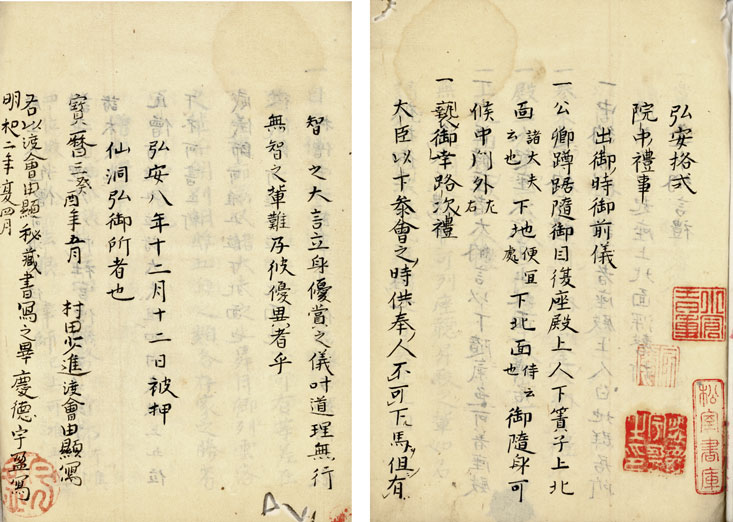 弘安格式
院中禮事
出御時御前儀
一公卿蹲踞隨御目復座殿上人下簀子上北
面諸大夫云也下地便宜處下北面侍云也御隨身可
候中門外左右
一褻御幸路次禮
大臣以下參會之時供奉人不可下馬但有
松室書庫
智之大言立身優賞之儀叶道理無行
無智之輩難存彼優異者乎
弘安八年十二月十二日被押
仙洞弘御所者也
寶曆三癸酉年五月 村田少進渡會由顯寫
右以渡會由顯秘藏書寫之畢 慶德宇盈寫
明和二年夏四月